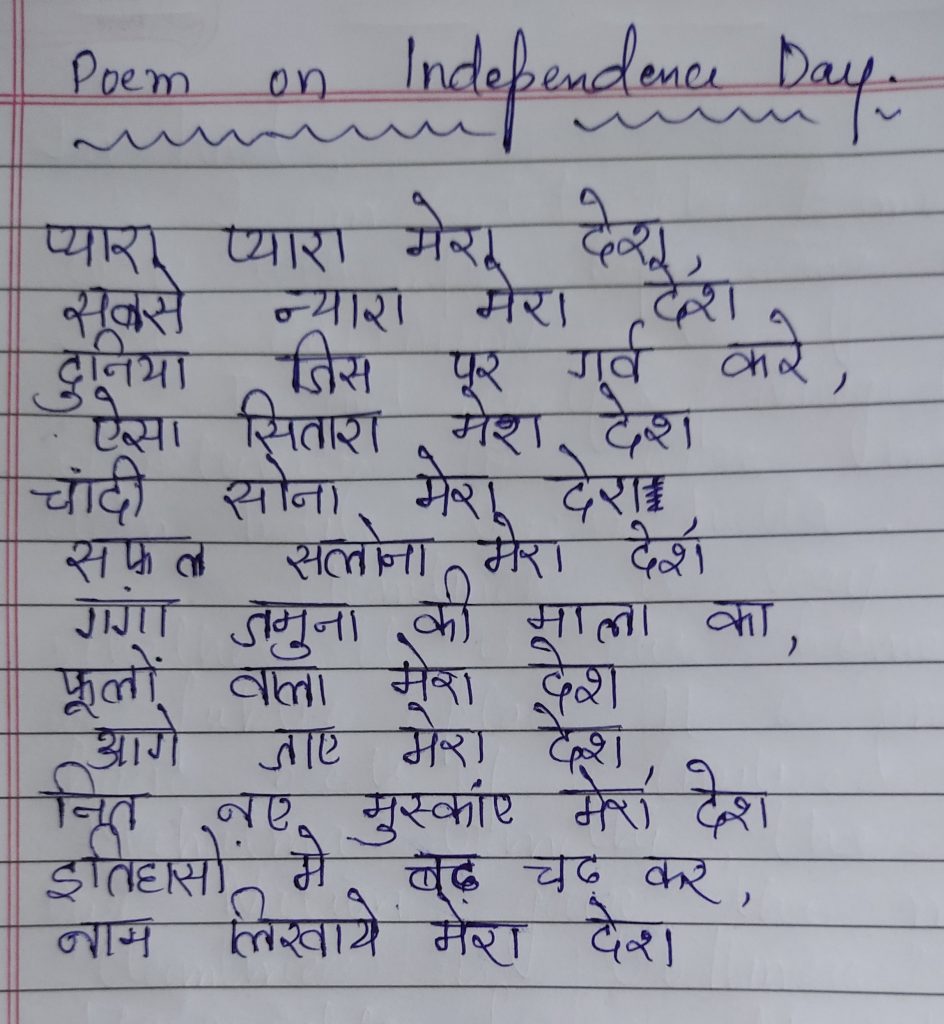 Poem on Independence Day.
प्यारा प्यारा मेरा देश,
सबसे न्यारा मेरा देश
दुनिया जिस पर गर्व करे,
ऐसा सितारा मेरा देश
चांदी सोना मेरा देश
सफल सलोना मेरा देश
गगां जमुना की माला का,
फूलों वाला मेरा देश
आगे जाए मेरा देश,
नित नए मुस्कांए मेरा देश
इतिहासों मे बढ़ चढ़ कर,
नाम लिखाये मेरा देश